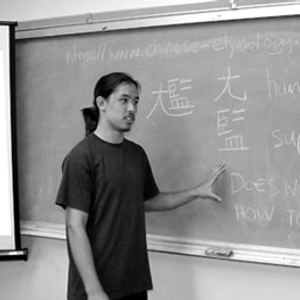 http://www.chinese-etymology
尷 尢 hum
監 sup
DOES N
HOW T